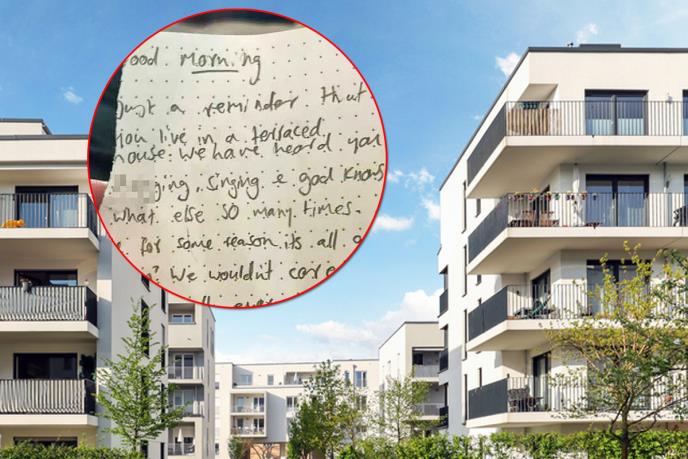 ood Morning
just a reminder that
you live in a terraced
house. We have heard you
ging, Singing & god knows
what else so many times.
for some reason its all
We wouldn't care